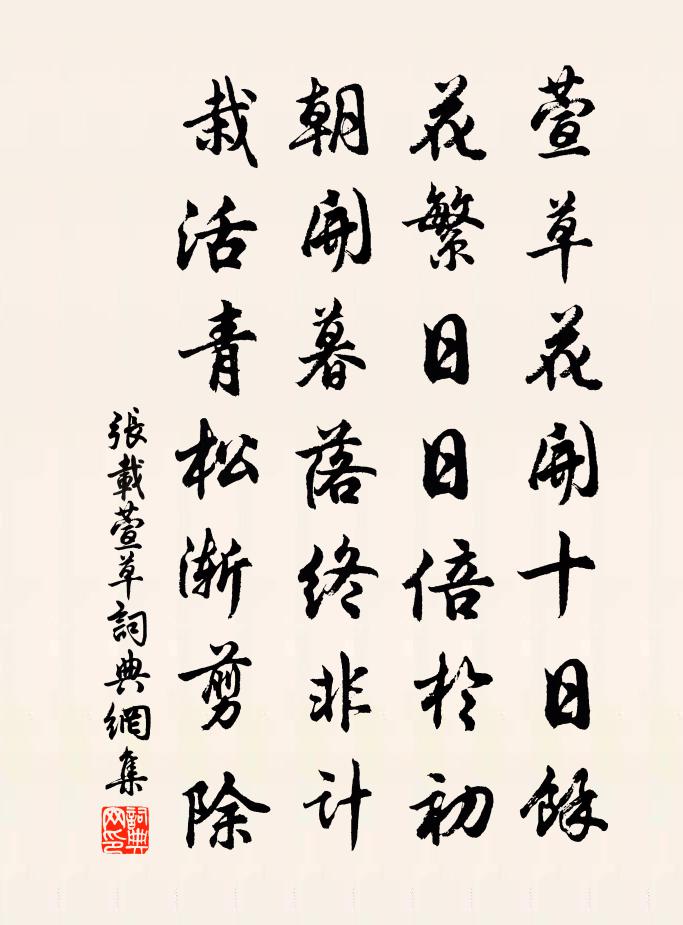 萱草花開十日餘
花繁日日倍於初
朝開暮落終非計
栽活青松漸剪除
張載萱草詞典網集
詞典網印